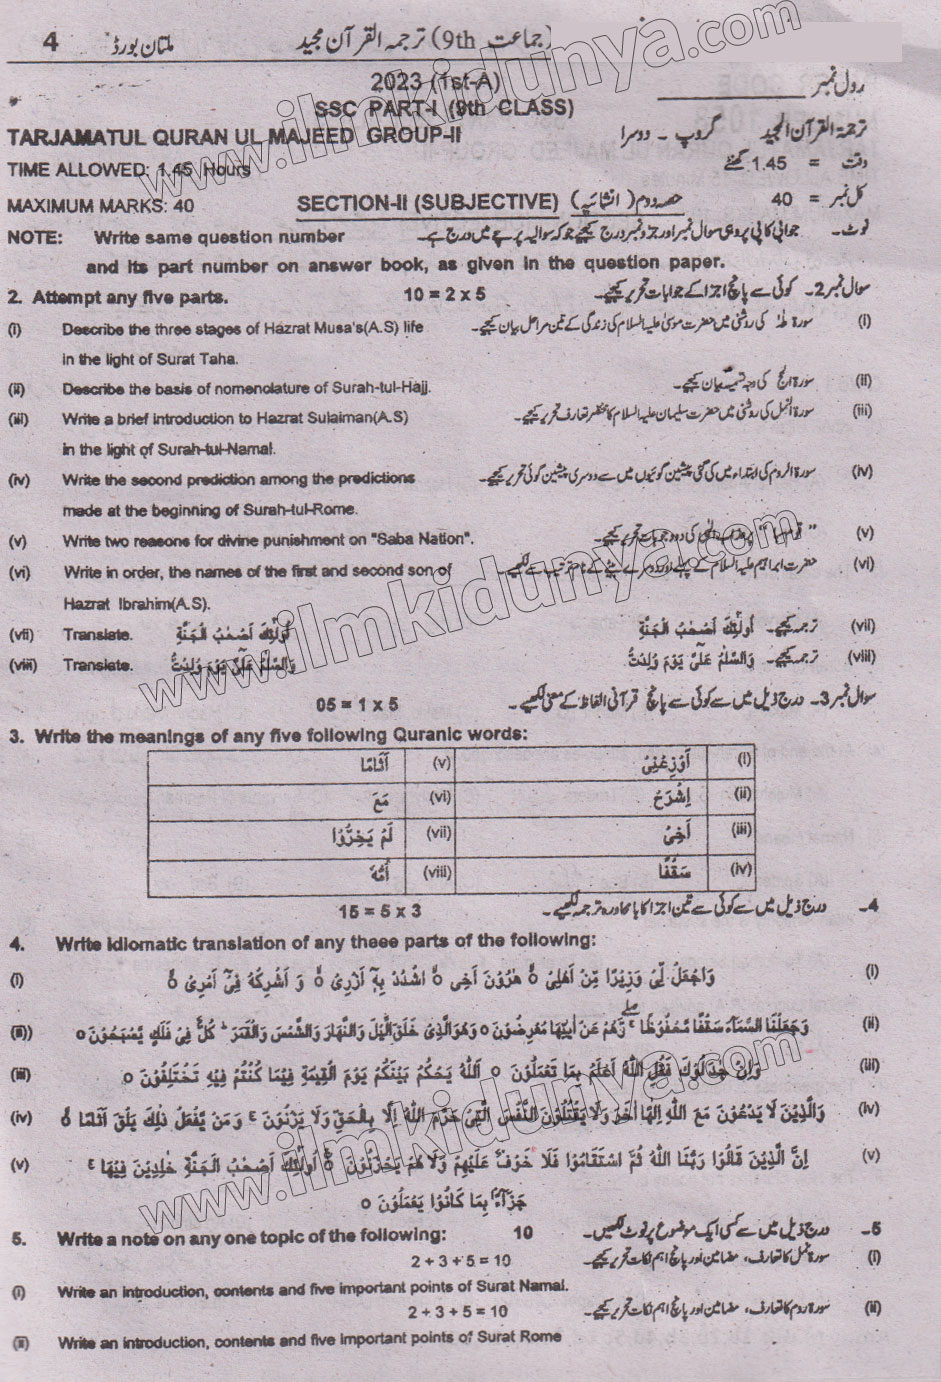 4 ملتان بورڈ (جماعت 9th) ترجمہ القرآن مجید
2023 (1st-A) رول نمبر
SSC PART-I (9th CLASS)
TARJAMATUL QURAN UL MAJEED GROUP-II گروپ ۔ دوسرا ترجمۃ القرآن المجید
TIME ALLOWED: 1.45 Hours وقت = 1.45 گھنٹے
MAXIMUM MARKS: 40 SECTION-II (SUBJECTIVE) حصہ دوم ( انشائیہ ) کل نمبر = 40
NOTE: Write same question number نوٹ۔ جوابی کاپی پر وہی سوال نمبر اور جزو نمبر درج کیجیے جو کہ سوالیہ پرچے میں درج ہے۔
and its part number on answer book, as given in the question paper.
2. Attempt any five parts. 10 = 2 x 5 سوال نمبر 2۔ کوئی سے پانچ اجزا کے جوابات تحریر کیجیے۔
(i) Describe the three stages of Hazrat Musa's(A.S) life سورۃ طٰہٰ کی روشنی میں حضرت موسیٰ علیہ السلام کی زندگی کے تین مراحل بیان کیجیے۔ (i)
in the light of Surat Taha.
(ii) Describe the basis of nomenclature of Surah-tul-Hajj. سورۃ الحج کی وجہ تسمیہ بیان کیجیے۔ (ii)
(iii) Write a brief introduction to Hazrat Sulaiman(A.S) سورۃ النمل کی روشنی میں حضرت سلیمان علیہ السلام کا مختصر تعارف تحریر کیجیے۔ (iii)
in the light of Surah-tul-Namal.
(iv) Write the second prediction among the predictions سورۃ الروم کی ابتداء میں کی گئی پیشین گوئیوں میں سے دوسری پیشین گوئی تحریر کیجیے۔ (iv)
made at the beginning of Surah-tul-Rome.
(v) Write two reasons for divine punishment on "Saba Nation". "قوم سبا" پر عذاب الٰہی کی دو وجوہات تحریر کیجیے۔ (v)
(vi) Write in order, the names of the first and second son of حضرت ابراہیم علیہ السلام کے پہلے اور دوسرے بیٹے کے نام ترتیب سے لکھیے۔ (vi)
Hazrat Ibrahim(A.S).
(vii) Translate. اُولٰٓئِكَ اَصْحٰبُ الْجَنَّةِ ترجمہ کیجیے۔ اُولٰٓئِكَ اَصْحٰبُ الْجَنَّةِ (vii)
(viii) Translate. وَالسَّلٰمُ عَلَیَّ یَوْمَ وُلِدْتُّ ترجمہ کیجیے۔ وَالسَّلٰمُ عَلَیَّ یَوْمَ وُلِدْتُّ (viii)
05 = 1 x 5 سوال نمبر 3۔ درج ذیل میں سے کوئی سے پانچ قرآنی الفاظ کے معنی لکھیے۔
3. Write the meanings of any five following Quranic words:
(i) اَوْزِعْنِیْ (v) اَثَامًا
(ii) اِشْرَحْ (vi) مَعَ
(iii) اَخِیْ (vii) لَمْ یَخِرُّوْا
(iv) سَقْفًا (viii) اُمُّهٗ
15 = 5 x 3 4۔ درج ذیل میں سے کوئی سے تین اجزا کا بامحاورہ ترجمہ لکھیے۔
4. Write idiomatic translation of any theee parts of the following:
(i) وَاجْعَلْ لِّیْ وَزِیْرًا مِّنْ اَهْلِیْ ۝ هٰرُوْنَ اَخِی ۝ اشْدُدْ بِهٖۤ اَزْرِیْ ۝ وَ اَشْرِكْهُ فِیْۤ اَمْرِیْ ۝ (i)
(ii)) وَجَعَلْنَا السَّمَآءَ سَقْفًا مَّحْفُوْظًا ۚ وَّهُمْ عَنْ اٰیٰتِهَا مُعْرِضُوْنَ ۝ وَهُوَ الَّذِیْ خَلَقَ الَّیْلَ وَالنَّهَارَ وَالشَّمْسَ وَالْقَمَرَ ؕ كُلٌّ فِیْ فَلَكٍ یَّسْبَحُوْنَ ۝ (ii)
(iii) وَاِنْ جٰدَلُوْكَ فَقُلِ اللّٰهُ اَعْلَمُ بِمَا تَعْمَلُوْنَ ۝ اَللّٰهُ یَحْكُمُ بَیْنَكُمْ یَوْمَ الْقِیٰمَةِ فِیْمَا كُنْتُمْ فِیْهِ تَخْتَلِفُوْنَ ۝ (iii)
(iv) وَالَّذِیْنَ لَا یَدْعُوْنَ مَعَ اللّٰهِ اِلٰهًا اٰخَرَ وَلَا یَقْتُلُوْنَ النَّفْسَ الَّتِیْ حَرَّمَ اللّٰهُ اِلَّا بِالْحَقِّ وَلَا یَزْنُوْنَ ۚ وَمَنْ یَّفْعَلْ ذٰلِكَ یَلْقَ اَثَامًا ۝ (iv)
(v) اِنَّ الَّذِیْنَ قَالُوْا رَبُّنَا اللّٰهُ ثُمَّ اسْتَقَامُوْا فَلَا خَوْفٌ عَلَیْهِمْ وَلَا هُمْ یَحْزَنُوْنَ ۝ اُولٰٓئِكَ اَصْحٰبُ الْجَنَّةِ خٰلِدِیْنَ فِیْهَا ۚ (v)
جَزَآءًۢ بِمَا كَانُوْا یَعْمَلُوْنَ ۝
5. Write a note on any one topic of the following: 10 5۔ درج ذیل میں سے کسی ایک موضوع پر نوٹ لکھیں۔
2 + 3 + 5 = 10 سورۃ نمل کا تعارف، مضامین اور پانچ اہم نکات تحریر کیجیے۔ (i)
(i) Write an introduction, contents and five important points of Surat Namal.
2 + 3 + 5 = 10 سورۃ روم کا تعارف، مضامین اور پانچ اہم نکات تحریر کیجیے۔ (ii)
(ii) Write an introduction, contents and five important points of Surat Rome
www.ilmkidunya.com
www.ilmkidunya.com
www.ilmkidunya.com